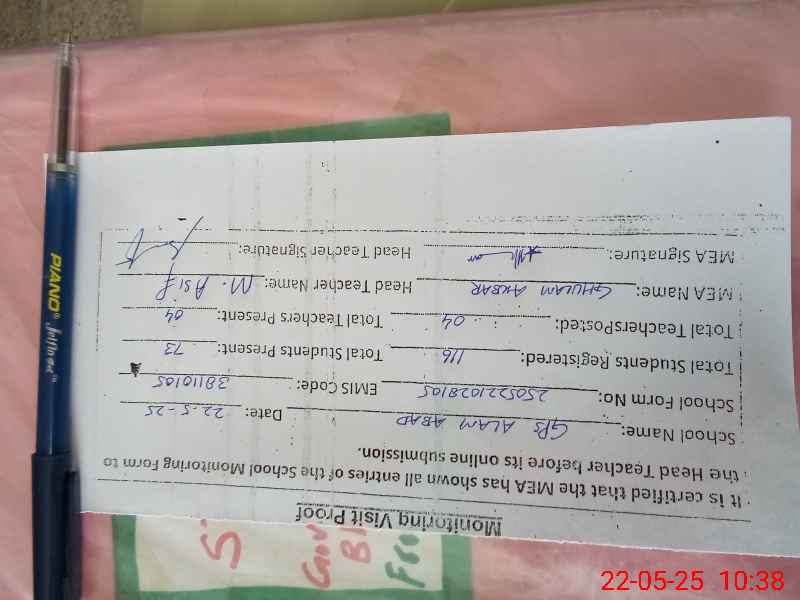 Monitoring Visit Proof
It is certified that the MEA has shown all entries of the School Monitoring Form to
the Head Teacher before its online submission.
School Name: GPS ALAM ABAD Date: 22-5-25
School Form No: 2505221028105 EMIS Code: 38110105
Total Students Registered: 116 Total Students Present: 73
Total TeachersPosted: 04 Total Teachers Present: 04
MEA Name: GHULAM AKBAR Head Teacher Name: M. Asif
MEA Signature: Head Teacher Signature:
PIANO
22-05-25 10:38